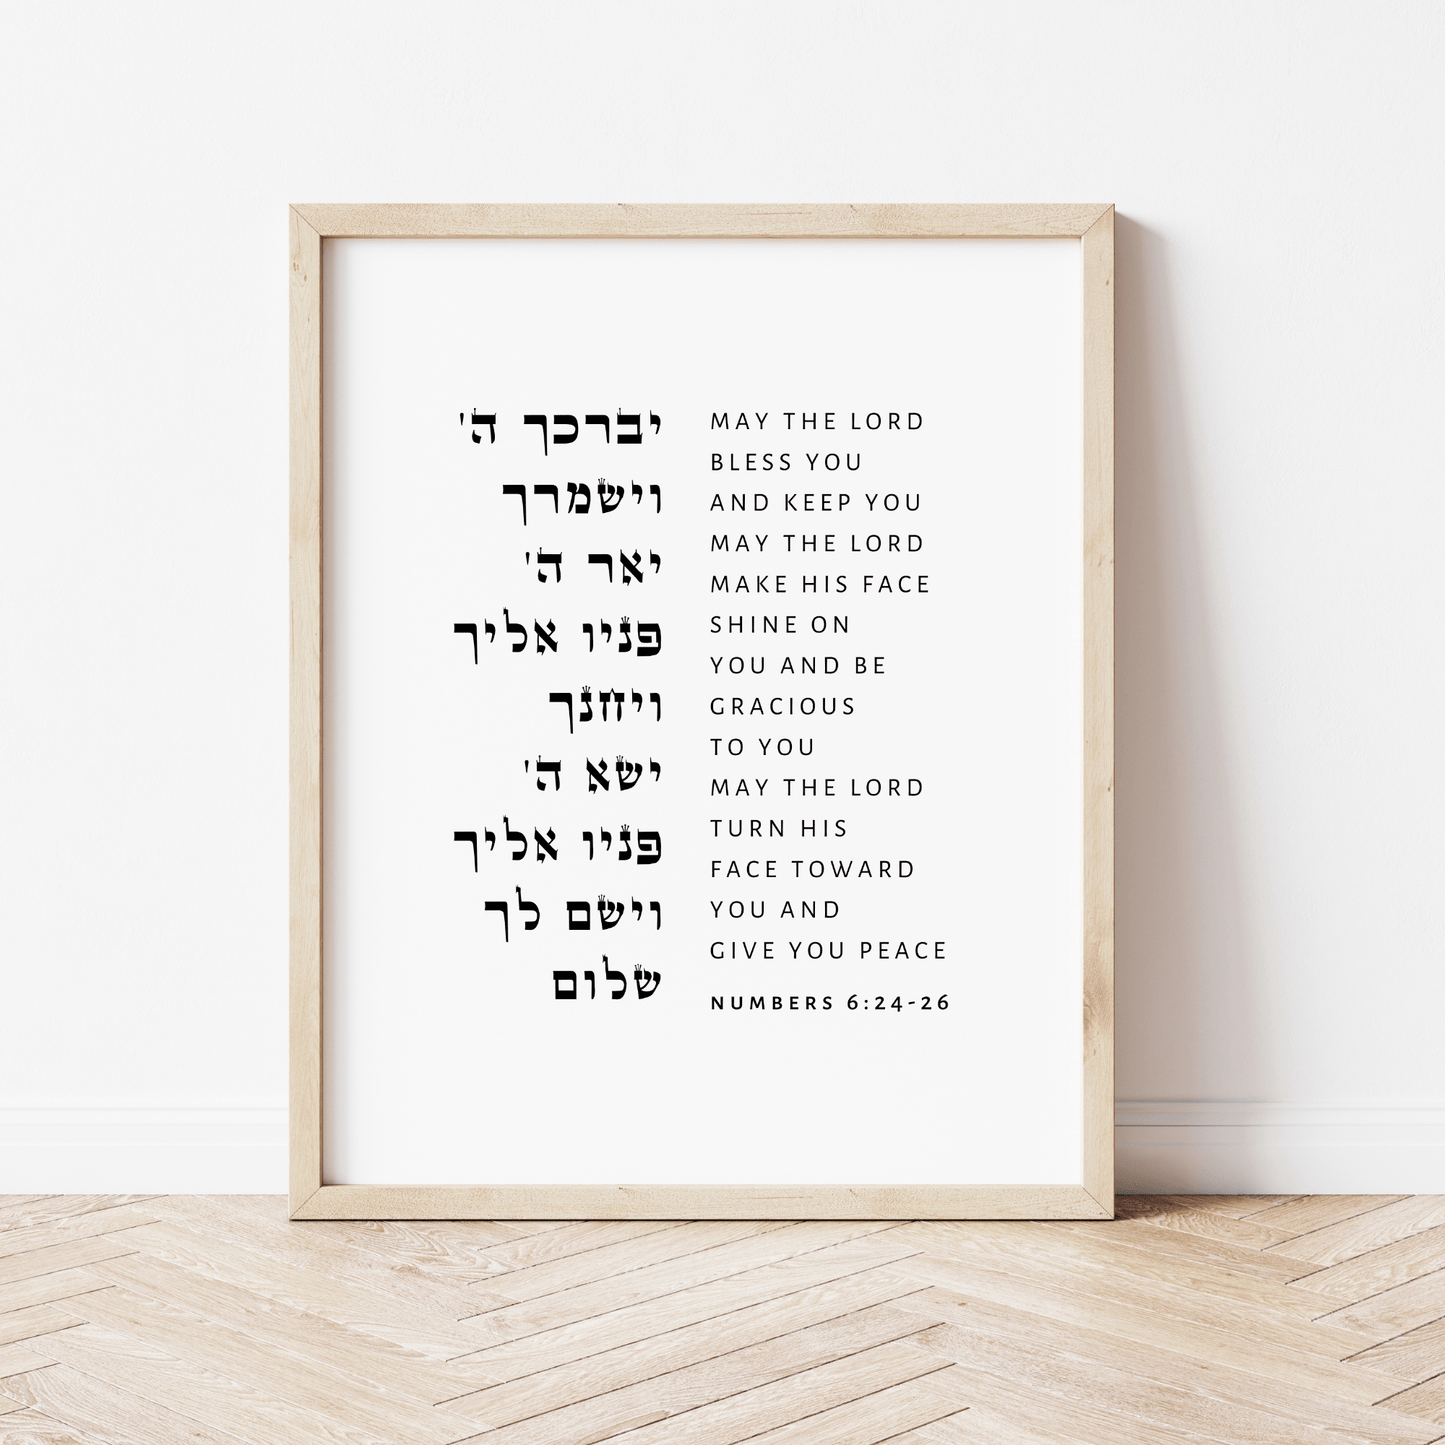 יברכך ה'
וישמרך
יאר ה'
פניו אליך
ויחנך
ישא ה'
פניו אליך
וישם לך
שלום
MAY THE LORD
BLESS YOU
AND KEEP YOU
MAY THE LORD
MAKE HIS FACE
SHINE ON
YOU AND BE
GRACIOUS
TO YOU
MAY THE LORD
TURN HIS
FACE TOWARD
YOU AND
GIVE YOU PEACE
NUMBERS 6:24-26